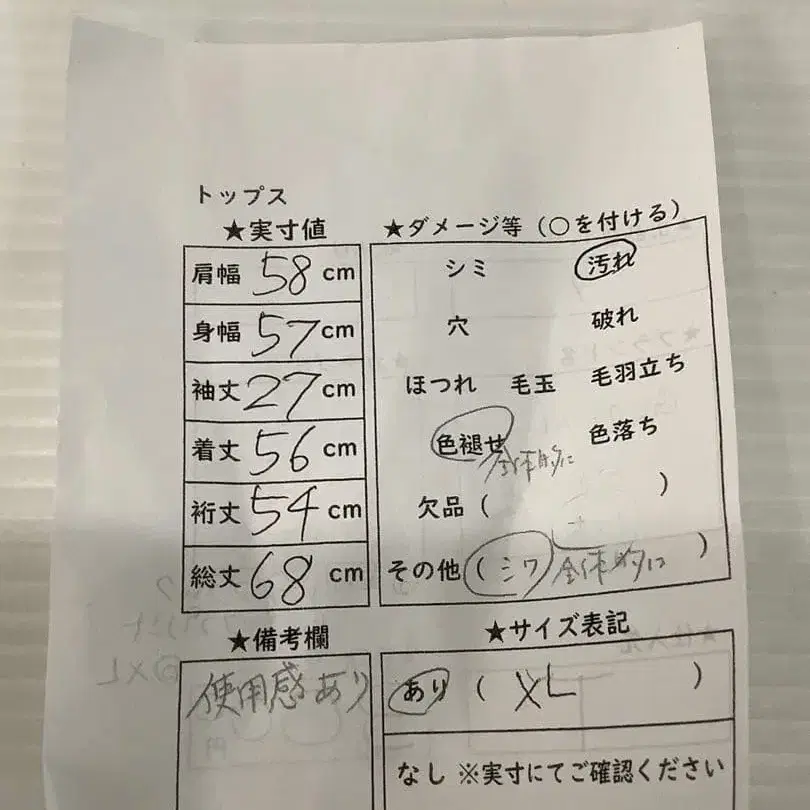 トップス
★実寸値
肩幅 58 cm
身幅 57 cm
袖丈 27 cm
着丈 56 cm
裄丈 54 cm
総丈 68 cm
★ダメージ等（○を付ける）
シミ 汚れ
穴 破れ
ほつれ 毛玉 毛羽立ち
色褪せ 色落ち
全体的に
欠品（ ）
その他（シワ 全体的に ）
★備考欄
使用感あり
★サイズ表記
あり（ XL ）
なし ※実寸にてご確認ください